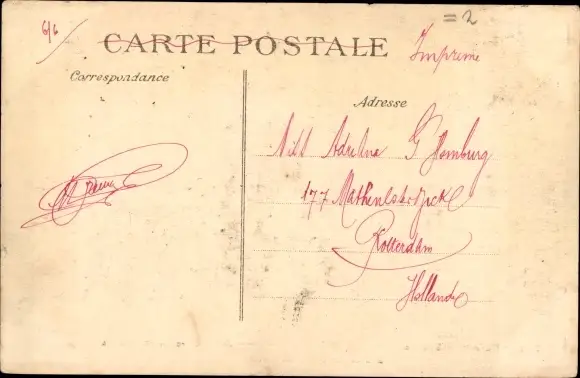 6/6
= 2
CARTE POSTALE
Imprimé
Correspondance
Adresse
Adrielna G Homburg
177 Mathenesserdijk
Rotterdam
Hollande